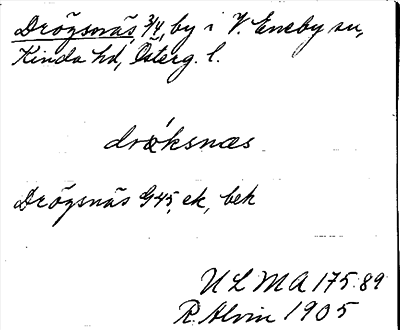 Drögsnäs, 3/4, by i V. Eneby sn,
Kinda hd, Österg. l.
dråksnæs
Drögsnäs G45, ek, bek
ULMA 175:89
R. Alvin 1905